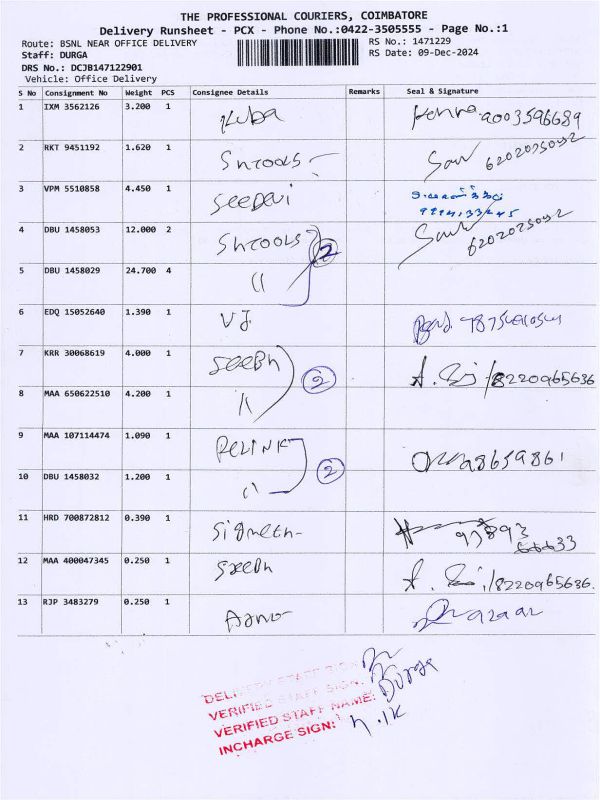 THE PROFESSIONAL COURIERS, COIMBATORE
Delivery Runsheet - PCX - Phone No.:0422-3505555 - Page No.:1
Route: BSNL NEAR OFFICE DELIVERY
RS No.: 1471229
Staff: DURGA
RS Date: 09-Dec-2024
DRS No.: DCJB147122901
Vehicle: Office Delivery
S No Consignment No Weight PCS Consignee Details Remarks Seal & Signature
1 IXM 3562126 3.200 1 Kuba 9003596689
2 RKT 9451192 1.620 1 Shrools 6202025092
3 VPM 5510858 4.450 1
4 DBU 1458053 12.000 2 Shrools 2 6202025092
5 DBU 1458029 24.700 4 "
6 EDQ 15052640 1.390 1 VJ
7 KRR 30068619 4.000 1 2 8220965636
8 MAA 650622510 4.200 1 "
9 MAA 107114474 1.090 1 RELINK 2
10 DBU 1458032 1.200 1 "
11 HRD 700872812 0.390 1
12 MAA 400047345 0.250 1 8220965636
13 RJP 3483279 0.250 1
DELIVERY STAFF SIGN:
VERIFIED STAFF SIGN:
VERIFIED STAFF NAME: Durga
INCHARGE SIGN: